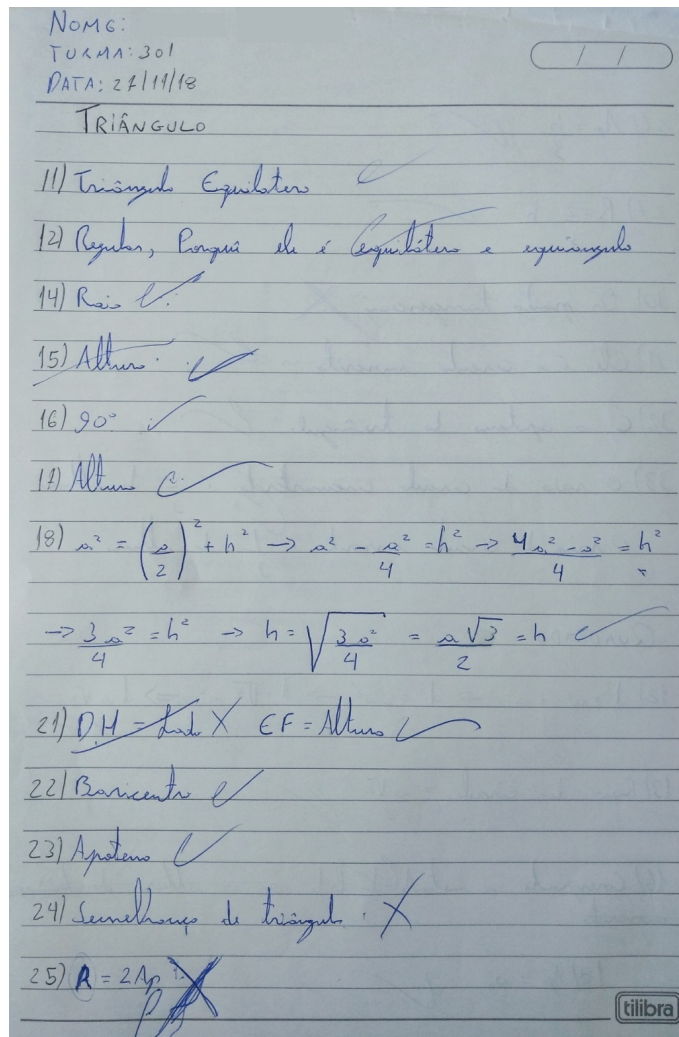 NOME:
TURMA: 301
DATA: 27/11/18
/ /
TRIÂNGULO
11) Triângulo Equilatero
12) Regular, Porquê ele é equilátero e equiangulo
14) Raio C.
15) Altura. C
16) 90°.
17) Altura C.
18) a² = (a/2)² + h² -> a² - a²/4 = h² -> 4a² - a²/4 = h²
-> 3a²/4 = h² -> h = √(3a²/4) = a√3/2 = h
21) DH = Lado X EF = Altura
22) Baricentro
23) Apotema
24) Semelhança de triângulo. X
25) R = 2Ap
tilibra